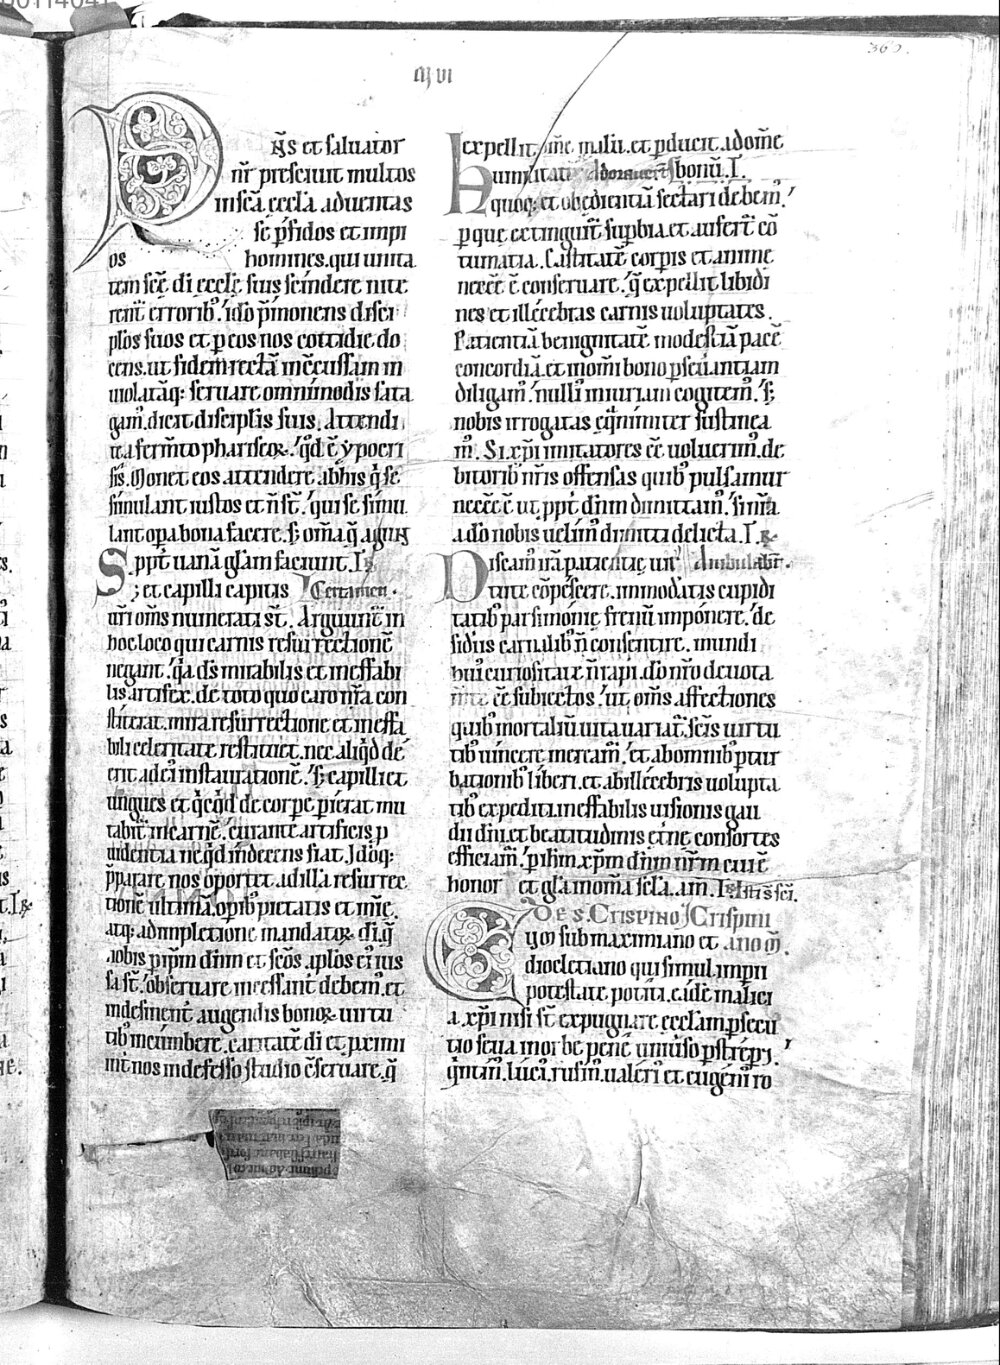 D n̄s et saluator
nr̄ presciuit multos
in sc̄a eccl̄a aduentas
se p̄fidos et impi
os homines. qui unita
tem scē di eccl̄e suis scindere nite
rent̄ erroribꝰ. ido p̄monens disci
plos suos et p eos nos cottidie do
cens. ut fidem rectā inc̄cussam in
uiolatāq; seruare om̄nimodis sata
gam̄. dicit discip̄lis suis. Attendi
te a ferm̄to phariseoꝝ. qd̄ ē ypocri
sis. Monet eos attendere ab his q̄ se
simulant iustos et n̄ st̄. qui se simu
lant opa bona facere. s; om̄a q̄ agunt
ppt̄ uanā gl̄am faciunt. I
S; et capilli capitis Certamen.
ur̄i om̄s numerati st̄. Arguunt̄ in
hoc loco qui carnis resurrectionē
negant. q̄a ds̄ mirabilis et ineffabi
lis artifex. de toto quo caro nr̄a con
stiterat. mira resurrectione et ineffa
bili celeritate restituet. nec aliqd̄ de
erit ad ei instaurationē. s; capilli et
ungues et qcqd̄ de corpe p̄ierat mu
tabit̄ in carnē. curante artificis p
uidentia ne qd̄ indecens fiat. Idoq;
p̄parare nos oportet ad illā resurrec
tionē ultimā. opibꝰ pietatis et mīe.
atq; adimpletione mandatoꝝ di. q̄
nobis p ip̄m dn̄m et scōs aplōs ei ius
sa st̄. obseruare incessant̄ debem̄. et
indesinent̄ augendis bonoꝝ uirtu
tibꝰ incumbere. caritatē di et p̄ximi
int̄ nos indefesso studio c̄seruare. q̄
expellit om̄e malū. et pducit ad om̄e
bonū. I. Adorauert̄
Humilitatē quoq; et obedientiā sectari debem̄.
p que extinguit̄ supbia. et aufert̄ cō
tumatia. Castitatē corpis et anime
necēe ē conseruare. q̄ expellit libidi
nes et illecebras carnis uoluptates.
Patientiā benignitatē modestiā pacē
concordiā. et in om̄i bono pseuerantiam
diligam̄. nulli iniuriam cogitem̄. s;
nobis irrogatas eq̄nimiter sustinea
m̄. Si xp̄i imitatores ēe uoluerim̄. de
bitoribꝰ nr̄is offensas quibꝰ pulsamur
necēe ē ut ppt̄ dn̄m dimittam̄. si nr̄a
a dō nobis uelim̄ dimitti delicta. I.
Discam̄ irā patientie uir Ambulabt̄.
tute cōpescere. inmoderatis cupidi
tatibꝰ parsimonie frenū imponere. de
sideriis carnalibꝰ n̄ consentire. mundi
huiꝰ curiositate n̄ rapi. dō nr̄o deuota
m̄te ēe subiectos. ut om̄s affectiones
quibꝰ mortaliū uita uariat̄. scīs uirtu
tibꝰ uincere meream̄. et ab omnibꝰ ptur
bationibꝰ liberi. et ab illecebris uolupta
tibꝰ expediti. ineffabilis uisionis gau
dii diu. et beatitudinis etn̄e consortes
efficiam̄. p ih̄m xp̄m dn̄m nr̄m cui ē
honor et gl̄a in om̄a scl̄a. am̄. I
DE S. CRISPINO Crispini
qoɪ sub maximiano et
diocletiano qui simul imp̄ii
potestate potiti. eidē malici
a. xp̄i nisi st̄ expugnare eccl̄am. psecu
tio seua in orbe penē uniūso pstrepi.
q̄ntini. luci. rufini. ualeri et eugenii ro